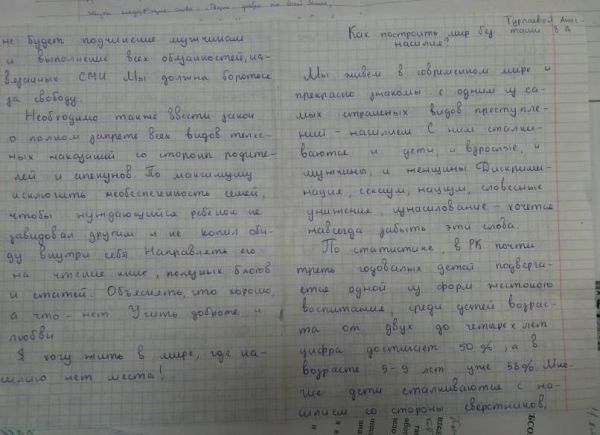 Как построить мир без
насилия?
Мы живём в современном мире и
прекрасно знакомы с одним из са-
мых страшных видов преступле-
ний - насилием С ним сталки-
ваются и дети, и взрослые, и
мужчины, и женщины Дискрими-
нация, сексизм, нацизм, словесные
унижения, изнасилование - хочется
навсегда забыть эти слова.
По статистике, в РК почти
треть годовалых детей подверга-
ется одной из форм жестокого
воспитания, среди детей возрас-
та от двух до четырех лет
цифра достигает 50 %, а в
возрасте 5-9 лет уже 58% Мно-
гие дети сталкиваются с на-
силием со стороны сверстников,
не будет подчинение мужчинам
и выполнение всех обязанностей, на-
вязанных СМИ Мы должны бороться
за свободу.
Необходимо также ввести закон
о полном запрете всех видов телес-
ных наказаний со стороны родите-
лей и опекунов По максимуму
исключить необеспеченность семей,
чтобы нуждающийся ребенок не
завидовал другим и не копил оби-
ду внутри себя Направлять его
на чтение книг, полезных блогов
и статей. Объяснять, что хорошо,
а что - нет Учить доброте и
любви
Я хочу жить в мире, где на-
силию нет места!